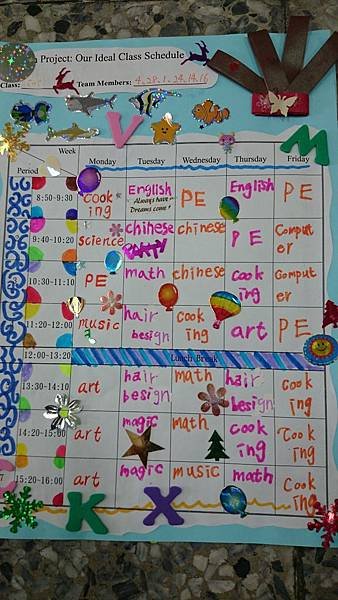 Project: Our Ideal Class Schedule
Class: Team Members: 4.28.1.24.14.16
V
M
Week
Period Monday Tuesday Wednesday Thursday Friday
8:50-9:30 cooking English Always have Dreams come! PE English PE
9:40-10:20 science chinese chinese PE Computer
10:30-11:10 PE math chinese cooking Computer
11:20-12:00 music hair besign cooking art PE
12:00-13:20 Lunch Break
13:30-14:10 art hair besign math hair besign cooking
14:20-15:00 art magic math cooking cooking
7 15:20-16:00 art magic music math cooking
K X